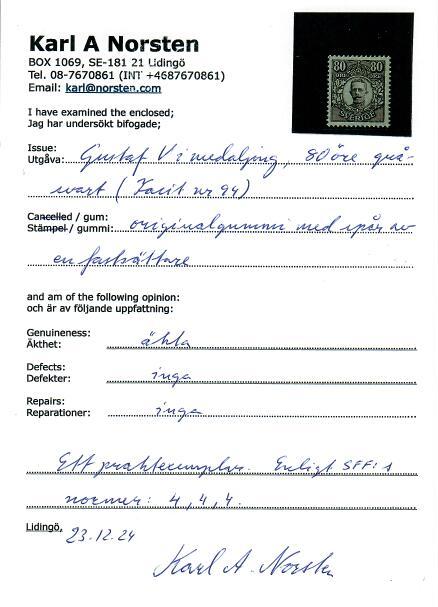 Karl A Norsten
BOX 1069, SE-181 21 Lidingö
Tel. 08-7670861 (INT +4687670861)
Email: karl@norsten.com
80 80
ÖRE ÖRE
SVERIGE
I have examined the enclosed;
Jag har undersökt bifogade;
Issue:
Utgåva: Gustaf V i medaljong, 80 öre grå-
svart (Facit nr 94)
Cancelled / gum:
Stämpel / gummi: originalgummi med spår av
en fastsättare
and am of the following opinion:
och är av följande uppfattning:
Genuineness:
Äkthet: äkta
Defects:
Defekter: inga
Repairs:
Reparationer: inga
Ett praktexemplar. Enligt SFF:s
normer: 4, 4, 4.
Lidingö, 23.12.24
Karl A. Norsten